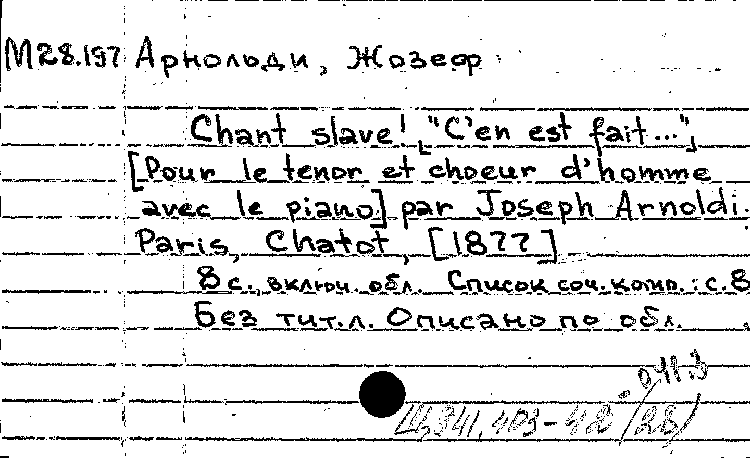 М28.197 Арнольди, Жозеф
Chant slave! ["C'en est fait..."]
[Pour le tenor et choeur d'homme
avec le piano] par Joseph Arnoldi.
Paris, Chatot, [1877]
8 с., включ. обл. Список соч. комп.: с.8
Без тит.л. Описано по обл.
Щ341.403-42